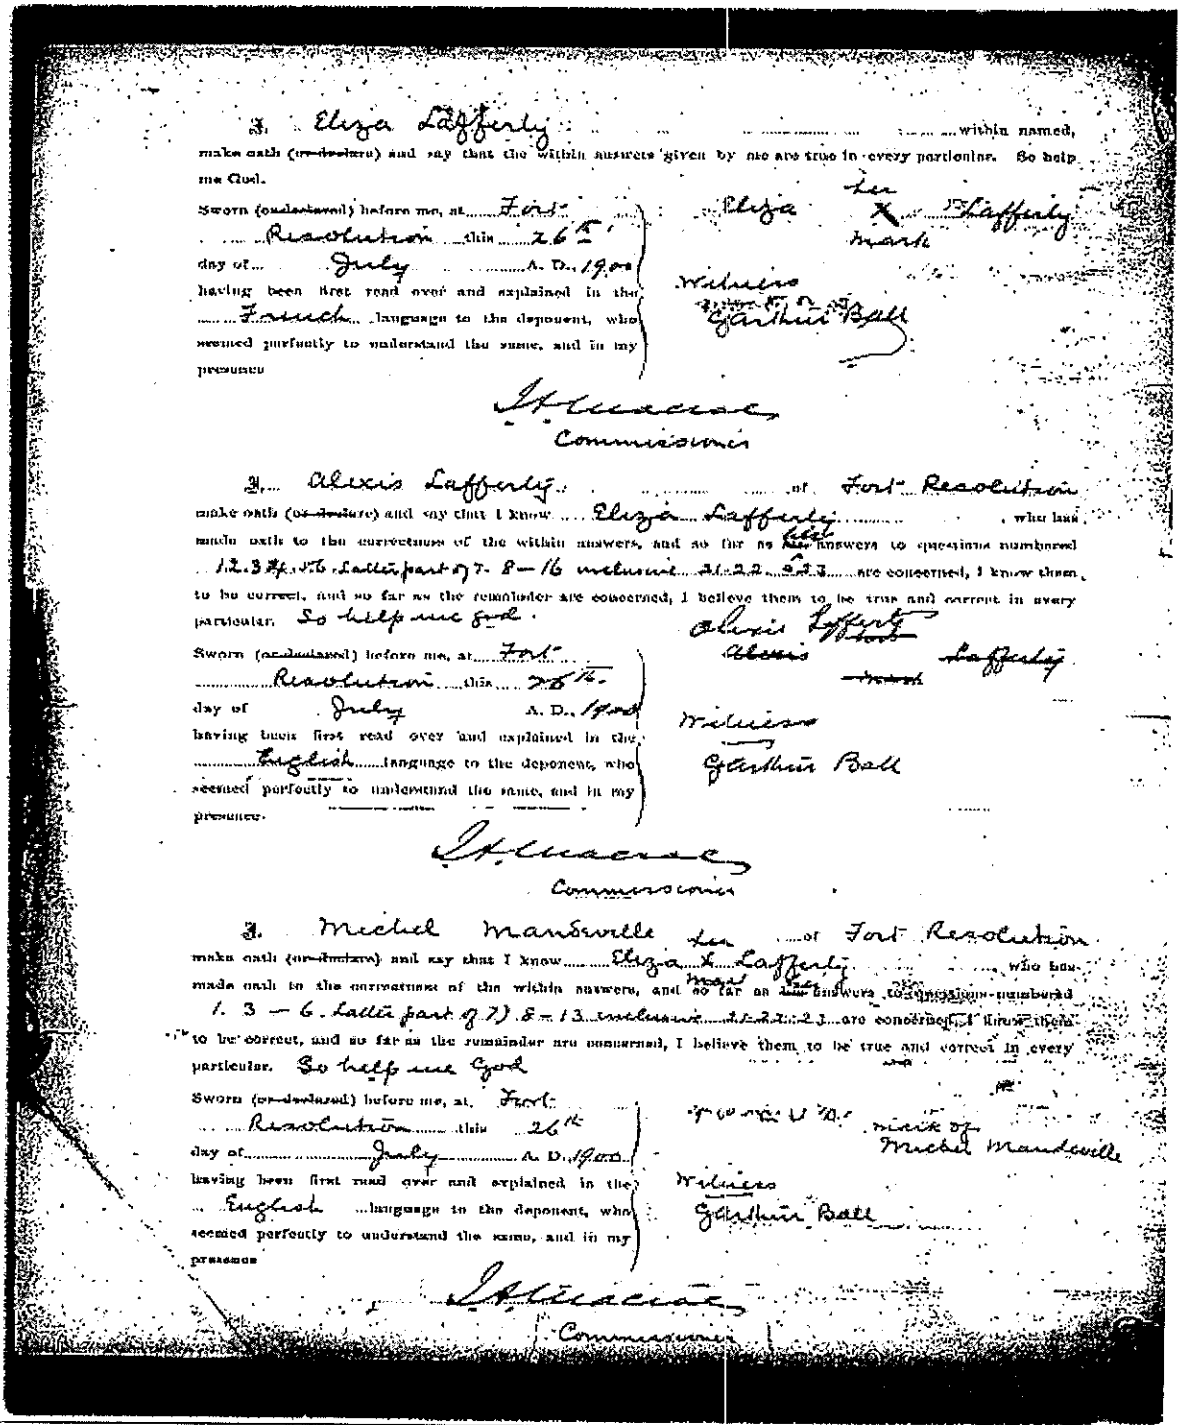 I, Eliza Lafferty within named,
make oath (or declare) and say that the within answers given by me are true in every particular. So help
me God.
Sworn (or declared) before me, at Fort
Resolution this 26th
day of July A. D., 1900
having been first read over and explained in the
French language to the deponent, who
seemed perfectly to understand the same, and in my
presence
her
Eliza X Lafferty
mark
Witness
Garthur Ball
Commissioner
I, Alexis Lafferty of Fort Resolution
make oath (or declare) and say that I know Eliza Lafferty, who has
made oath to the correctness of the within answers, and so far as her answers to questions numbered
1.2.3.4.5.6. Latter part of 7. 8-16 inclusive 21.22. are concerned, I know them
to be correct, and so far as the remainder are concerned, I believe them to be true and correct in every
particular. So help me God.
Sworn (or declared) before me, at Fort
Resolution this 26th
day of July A. D., 1900
having been first read over and explained in the
English language to the deponent, who
seemed perfectly to understand the same, and in my
presence.
Alexis Lafferty
Alexis Lafferty
mark
Witness
Garthur Ball
Commissioner
I, Michel Mandeville of Fort Resolution
her
make oath (or declare) and say that I know Eliza X Lafferty, who has
mark
made oath to the correctness of the within answers, and so far as her answers to questions numbered
1. 3-6. Latter part of 7) 8-13 inclusive 21.22.23 are concerned, I know them
to be correct, and so far as the remainder are concerned, I believe them to be true and correct in every
particular. So help me God
Sworn (or declared) before me, at Fort
Resolution this 26th
day of July A. D., 1900
having been first read over and explained in the
English language to the deponent, who
seemed perfectly to understand the same, and in my
presence
mark of
Michel Mandeville
Witness
Garthur Ball
Commissioner